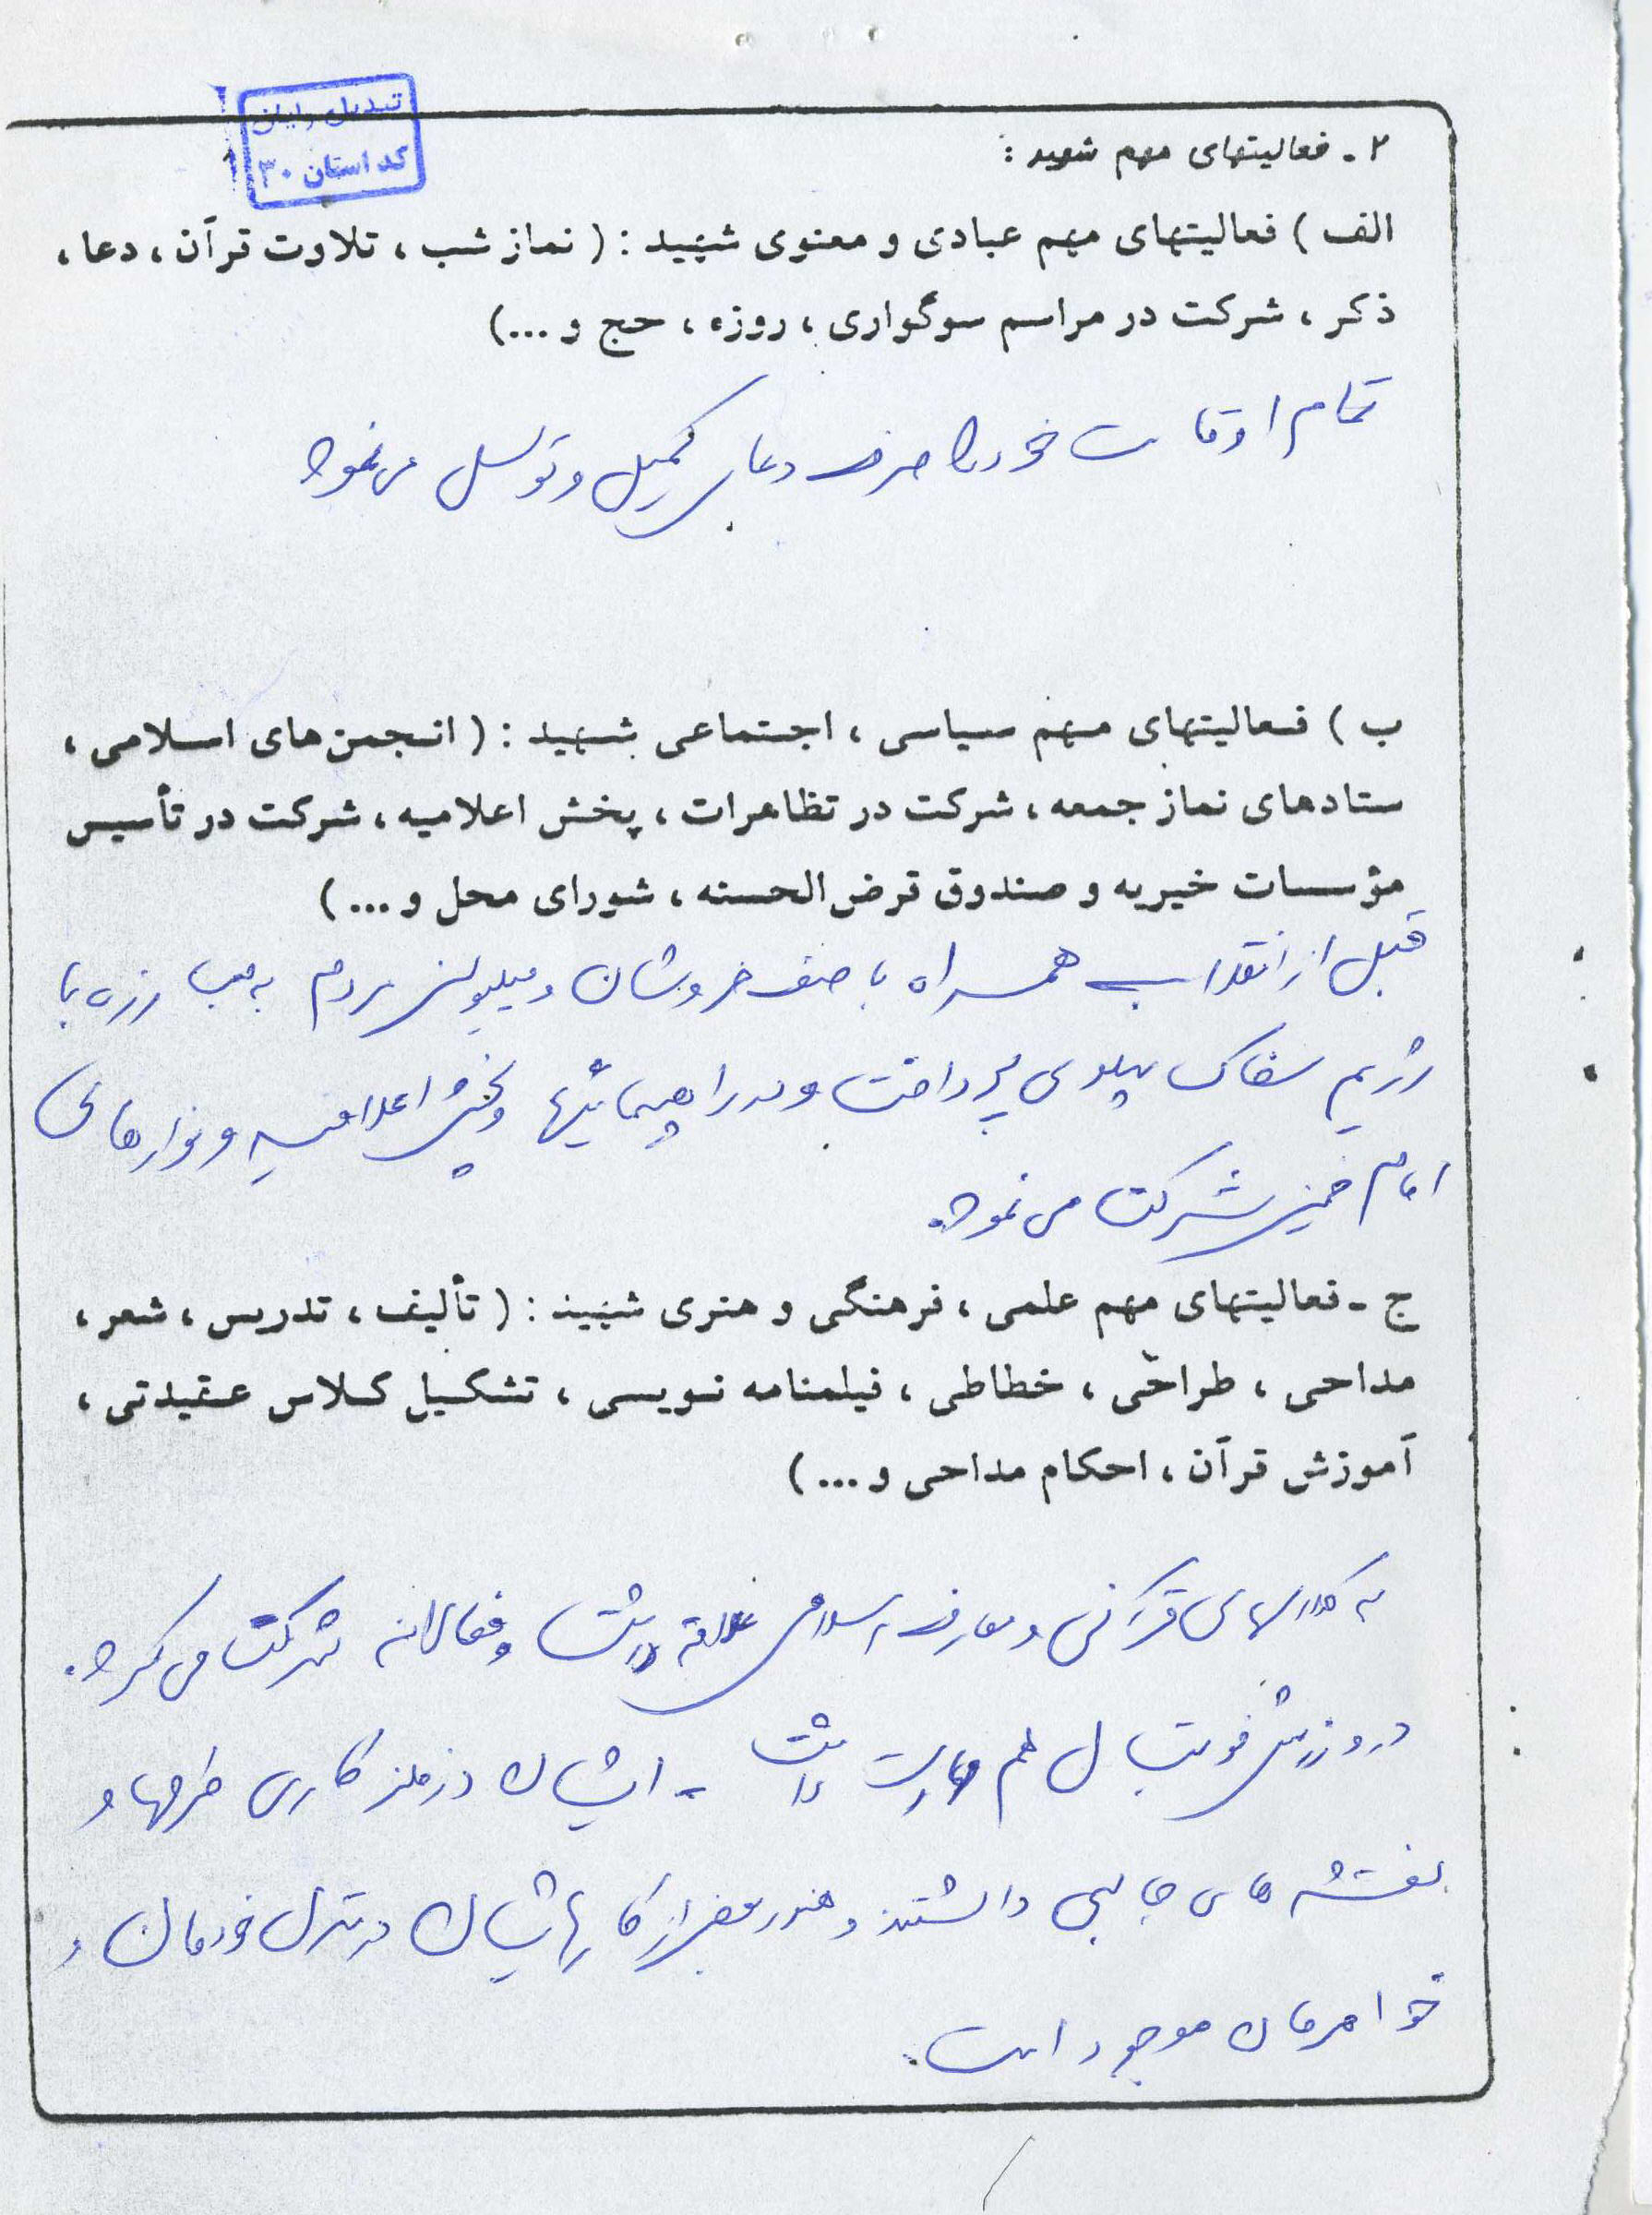 کد استان ۳۰
۲ ـ فعالیتهای مهم شهید :
الف ) فعالیتهای مهم عبادی و معنوی شهید : ( نماز شب ، تلاوت قرآن ، دعا ،
ذکر ، شرکت در مراسم سوگواری ، روزه ، حج و ...)
تمام اوقات خود را صرف دعای کمیل و توسل می نمود
ب ) فعالیتهای مهم سیاسی ، اجتماعی شهید : ( انجمن های اسلامی ،
ستادهای نماز جمعه ، شرکت در تظاهرات ، پخش اعلامیه ، شرکت در تأسیس
مؤسسات خیریه و صندوق قرض الحسنه ، شورای محل و ... )
قبل از انقلاب همراه با صف خروشان و میلیونی مردم به مبارزه با
رژیم سفاک پهلوی پرداخت و در راهپیمائیها و پخش اعلامیه و نوارهای
امام خمینی شرکت می نمود.
ج ـ فعالیتهای مهم علمی ، فرهنگی و هنری شهید : ( تألیف ، تدریس ، شعر ،
مداحی ، طراحّی ، خطاطی ، فیلمنامه نویسی ، تشکیل کلاس عقیدتی ،
آموزش قرآن ، احکام مداحی و ... )
به کلاسهای قرآنی و معارف اسلامی علاقه داشت و فعالانه شرکت می کرد.
در ورزش فوتبال هم مهارت داشت ـ ایشان در فلز کاری طرحها و
نقشه های جالبی داشتند و هنوز بعضی از کارهایشان در منزل خودمان و
خواهرمان موجود است.